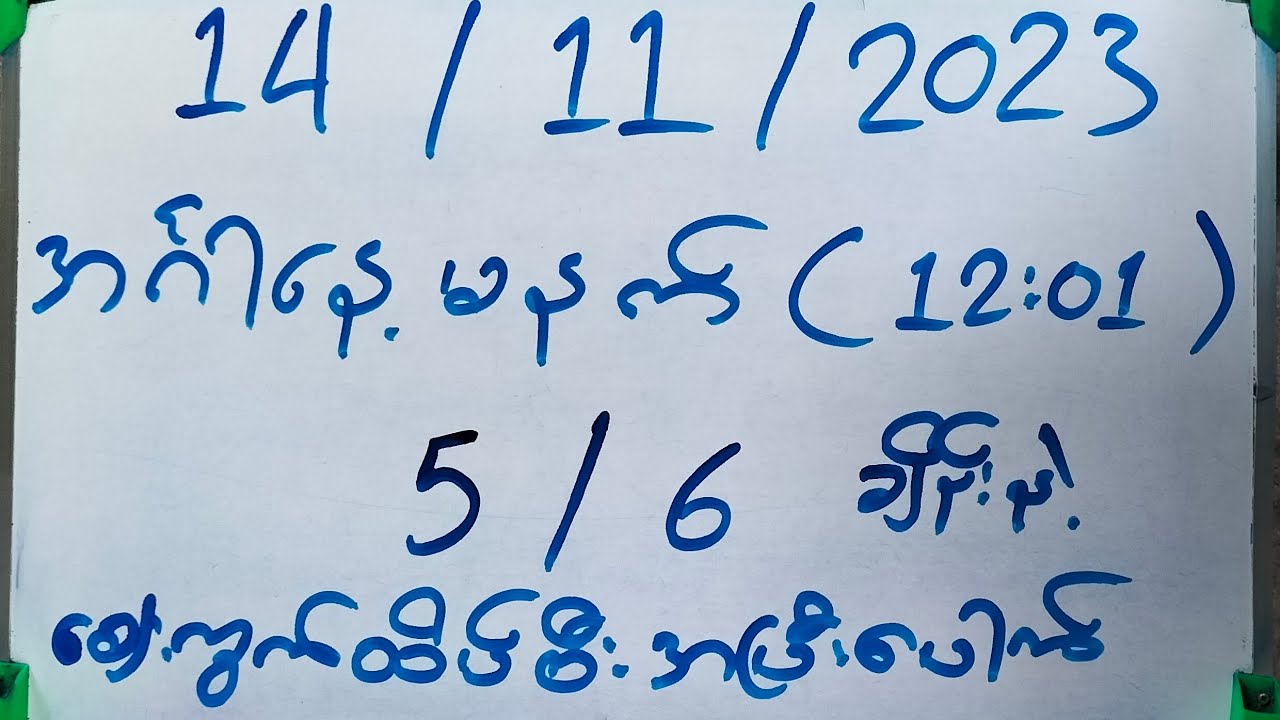 14 / 11 / 2023
အင်္ဂါနေ့ မနက် ( 12:01 )
5 / 6 ချိန်းနဲ့
ဈေးကွက်ထိပ်စီး အပြီးပေါက်